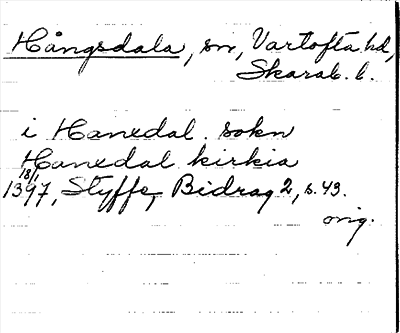 Hångsdala, sn, Vartofta hd,
Skarab. l.
i Hanedal . sokn
Hanedal kirkia
18/1
1397, Styffe, Bidrag 2, s. 43.
orig.